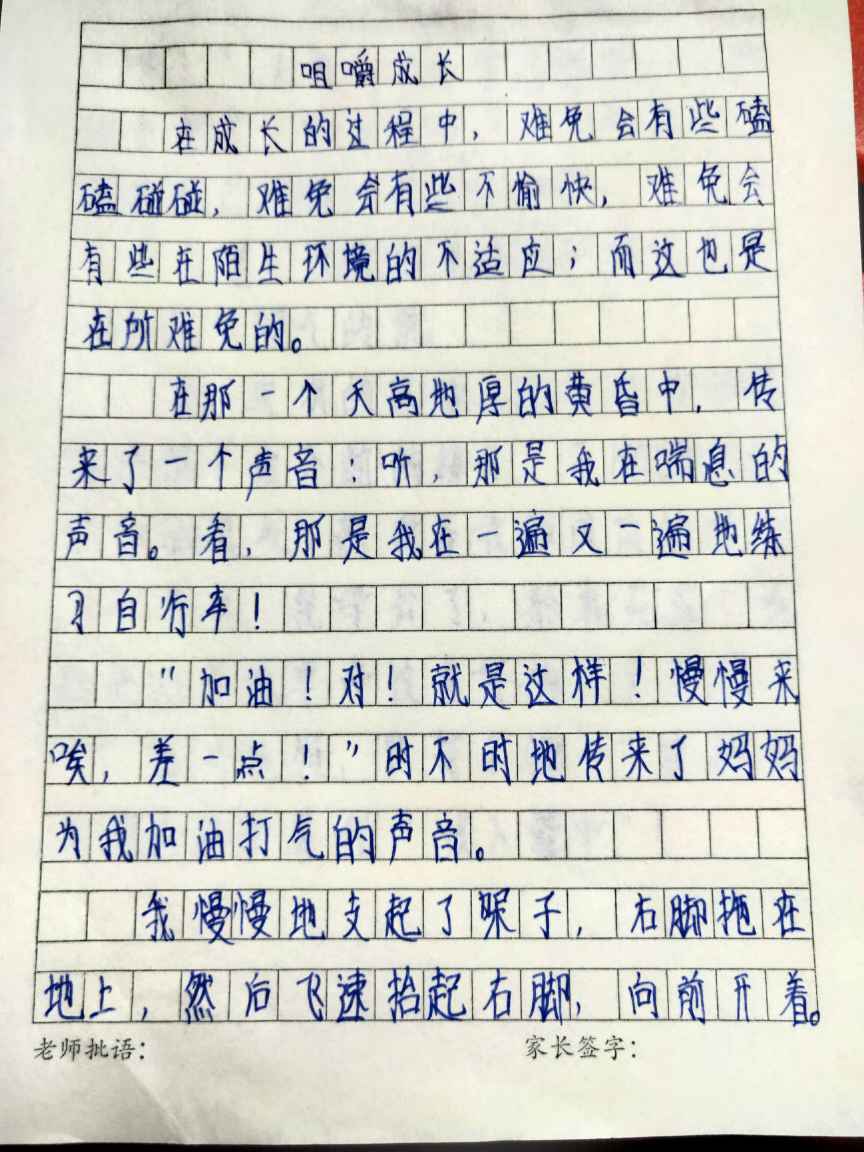 咀嚼成长
在成长的过程中，难免会有些磕
磕碰碰，难免会有些不愉快，难免会
有些在陌生环境的不适应；而这也是
在所难免的。
在那一个天高地厚的黄昏中，传
来了一个声音：听，那是我在喘息的
声音。看，那是我在一遍又一遍地练
习自行车！
"加油！对！就是这样！慢慢来
唉，差一点！"时不时地传来了妈妈
为我加油打气的声音。
我慢慢地支起了子，右脚拖在
地上，然后飞速抬起右脚，向前开着。
老师批语：
家长签字：